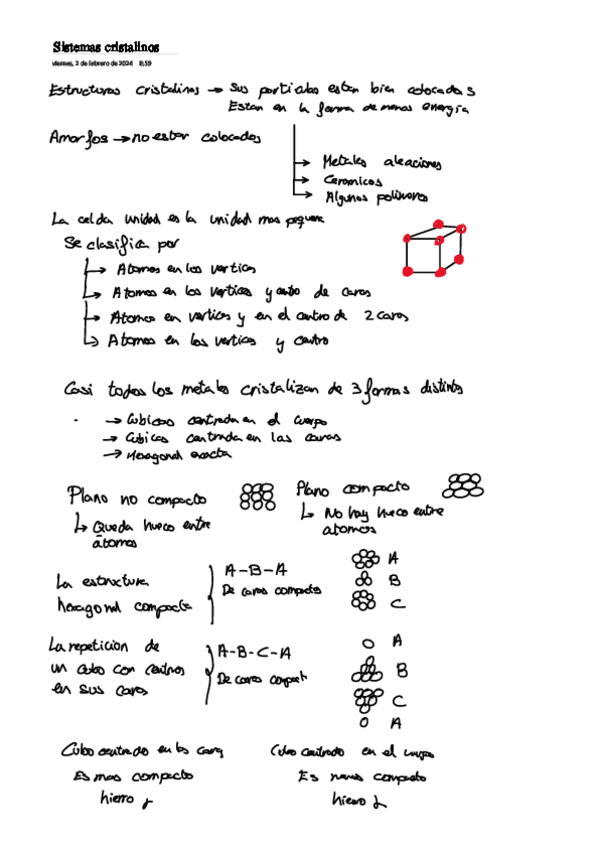 Sistemas cristalinos
viernes, 2 de febrero de 2024 8:59
Estructuras cristalinas → Sus particulas estan bien colocadas
Estan en la forma de menos energia
Amorfos → no estar colocados
→ Metales aleaciones
→ Ceramicos
→ Algunos polimeros
La celda unidad es la unidad mas pequeña
Se clasifica por
→ Atomos en los vertices
→ Atomos en los vertices y centro de caras
→ Atomos en vertices y en el centro de 2 caras
→ Atomos en los vertices y centro
Casi todos los metales cristalizan de 3 formas distintas
→ Cubicas centrada en el cuerpo
→ Cubicas centrada en las caras
→ Hexagonal
Plano no compacto
Plano compacto
↳ Queda hueco entre
atomos
↳ No hay hueco entre
atomos
La estructura
hexagonal compacta
A-B-A
De caras compactas
A
B
C
La repeticion de
un cubo con centros
en sus caras
A-B-C-A
De caras compact
A
B
C
A
Cubo centrado en las caras
Es mas compacto
hierro γ
Cubo centrado en el cuerpo
Es menos compacto
hierro